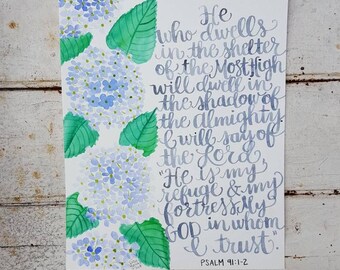 He
who dwells
in the shelter
of the Most High
will dwell in
the shadow of
the Almighty.
I will say of
the Lord,
"He is my
refuge & my
fortress, My
GOD, in whom
I trust."
PSALM 91:1-2